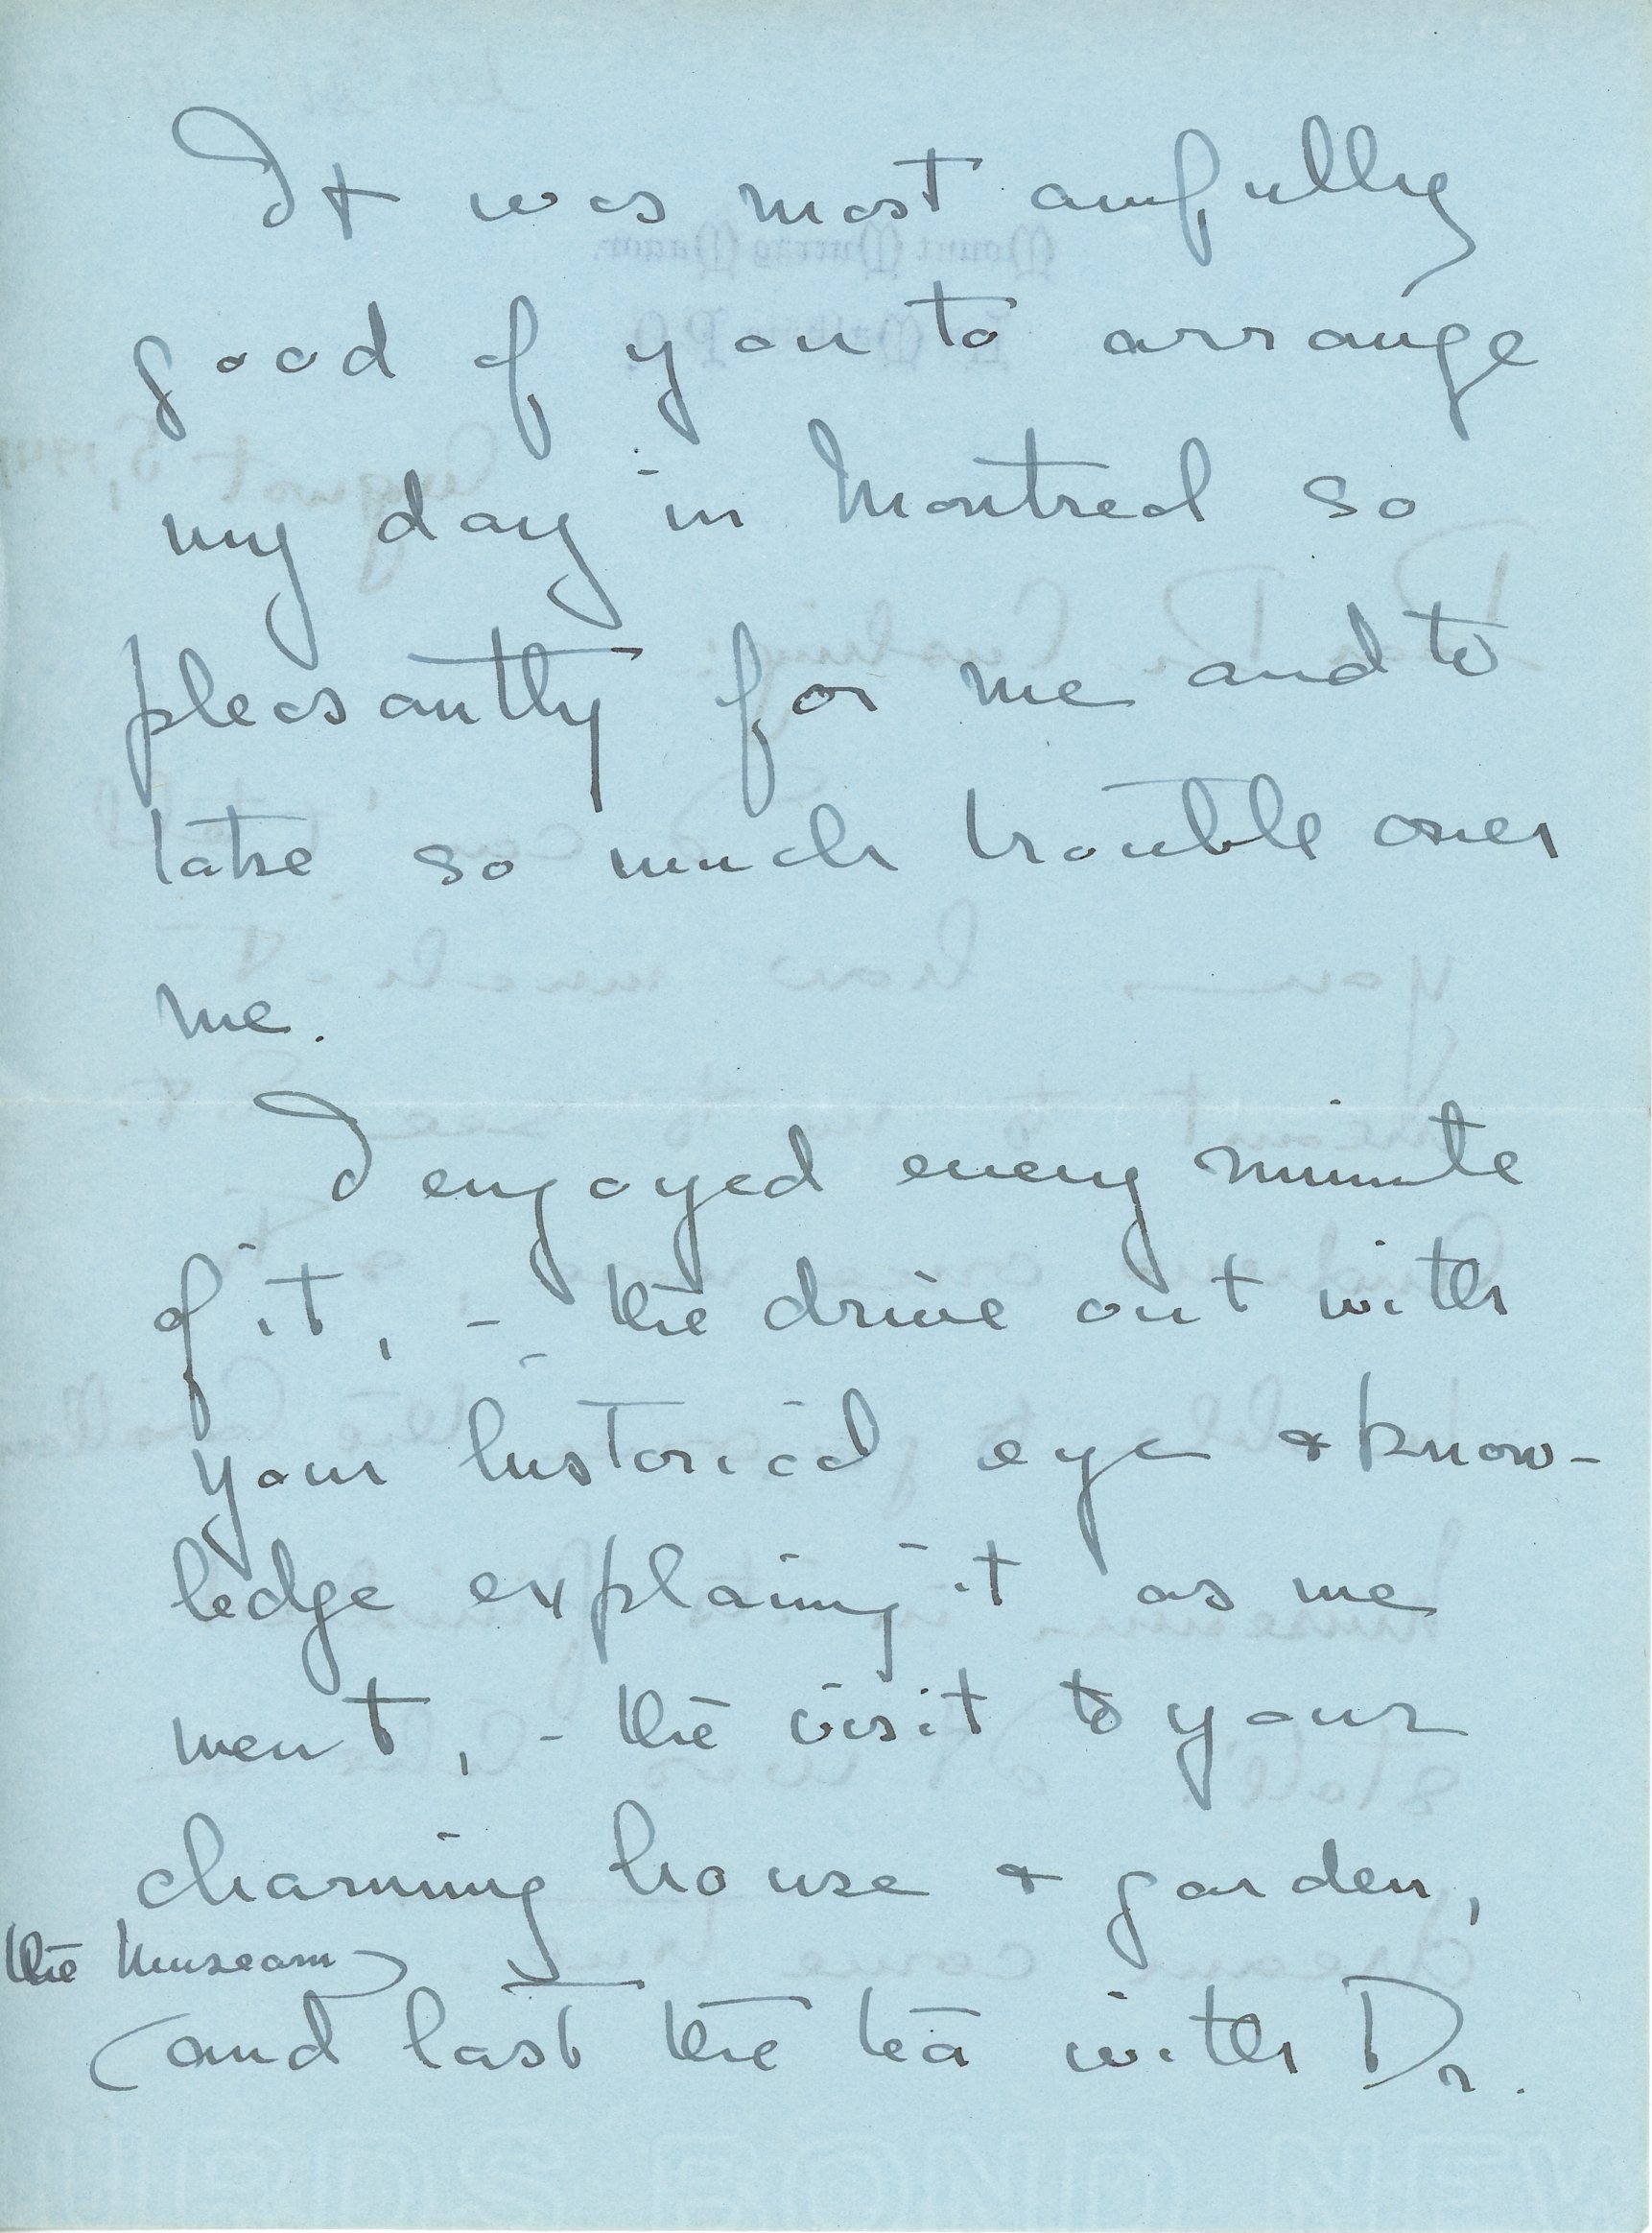 It was most awfully
good of you to arrange
my day in Montreal so
pleasantly for me and to
take so much trouble over
me.
I enjoyed every minute
of it, - the drive out with
your historical eye & know-
ledge explaining it as we
went, - the visit to your
charming house & garden,
the Museum
and last the tea with Dr.